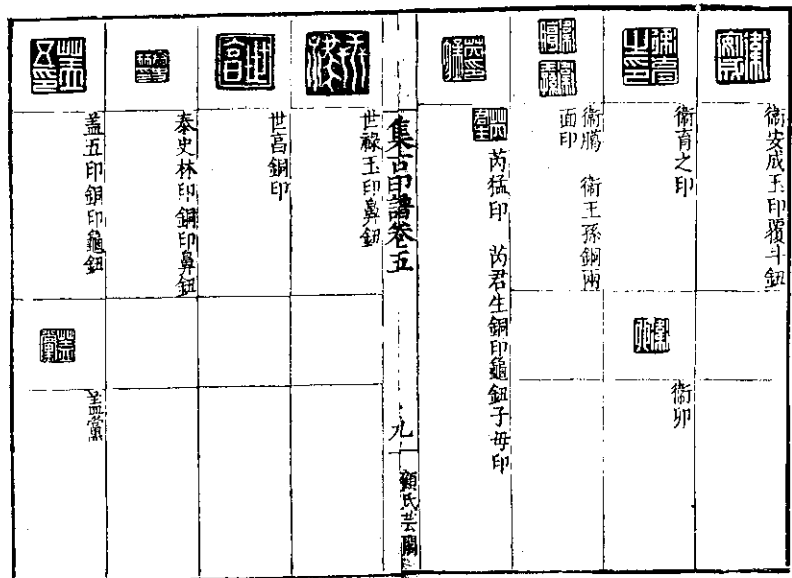 衞安成玉印覆斗鈕
衞育之印
衞卯
衞鵬 衞王孫銅兩
面印
芮猛印 芮君生銅印龜鈕子母印
集古印譜卷五
九
顧氏芸閣
世祿玉印鼻鈕
世宮銅印
秦史林印銅印鼻鈕
蓋五印銅印龜鈕
蓋黨